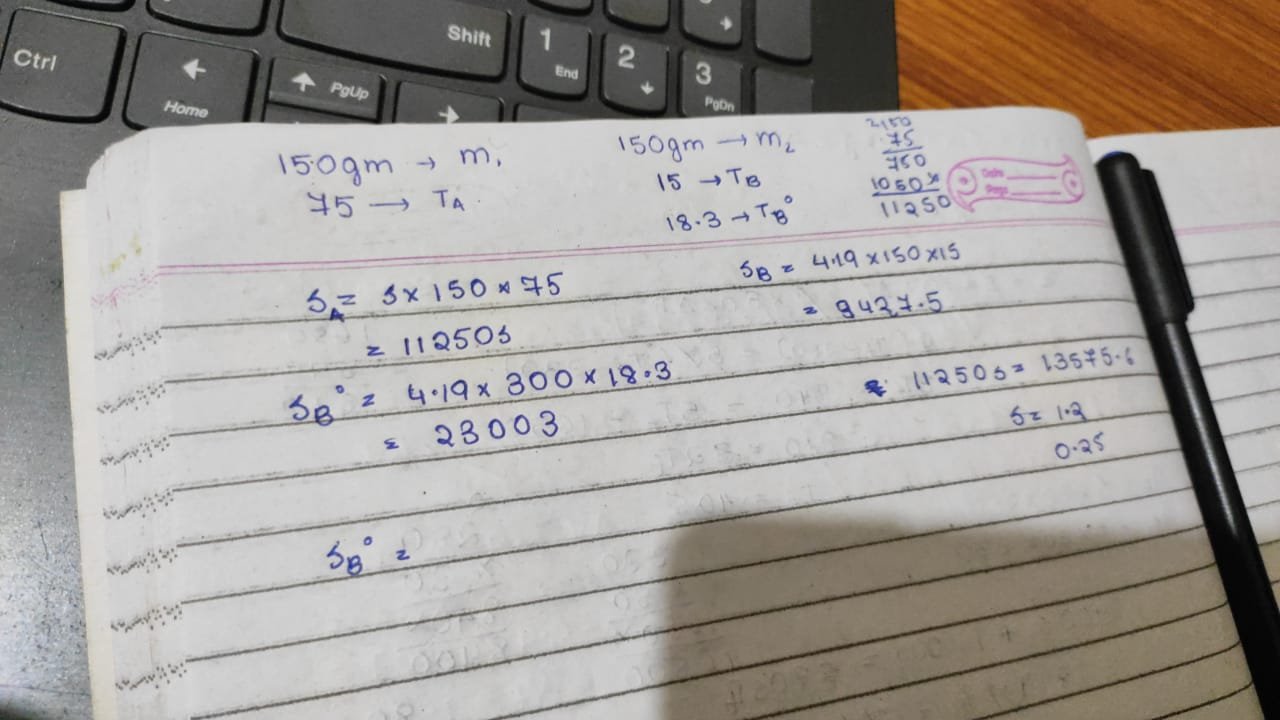 Shift
Ctrl
1
End
2
3
PgDn
Home
PgUp
150gm → m₁
75 → TA
150gm → m₂
15 → TB
18.3 → TB°
2150
75
750
1050×
11250
Date
Page
SA = S × 150 × 75
= 11250S
SB = 4.19 × 150 × 15
= 9427.5
SB° = 4.19 × 300 × 18.3
= 23003
11250S = 13575.6
S = 1.2
0.25
SB° =